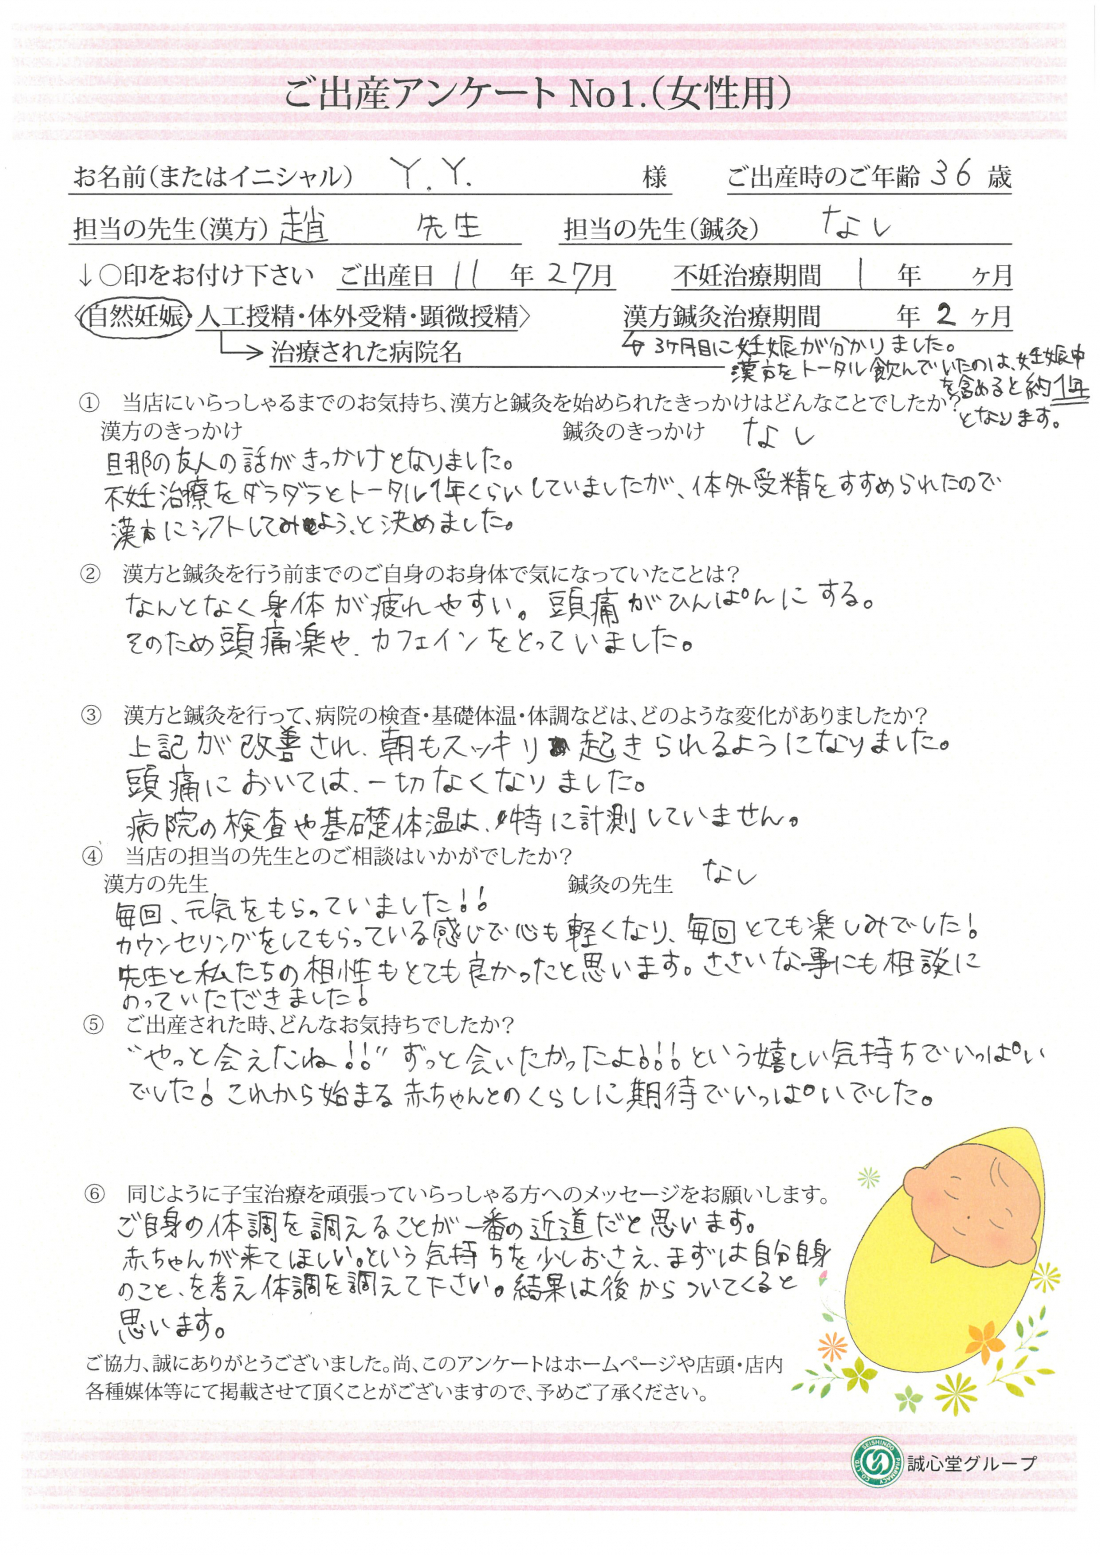 ご出産アンケート No1.（女性用）
お名前（またはイニシャル） Y.Y. 様 ご出産時のご年齢 36 歳
担当の先生（漢方） 趙 先生 担当の先生（鍼灸） なし
↓○印をお付け下さい ご出産日 11 年 27月 不妊治療期間 1 年 ヶ月
〈自然妊娠・人工授精・体外受精・顕微授精〉 漢方鍼灸治療期間 年 2 ヶ月
治療された病院名
3ヶ月目に妊娠が分かりました。
漢方をトータル飲んでいたのは、妊娠中
を含めると約1年
となります。
① 当店にいらっしゃるまでのお気持ち、漢方と鍼灸を始められたきっかけはどんなことでしたか？
漢方のきっかけ 鍼灸のきっかけ なし
旦那の友人の話がきっかけとなりました。
不妊治療をダラダラとトータル1年くらいしていましたが、体外受精をすすめられたので
漢方にシフトしてみよう、と決めました。
② 漢方と鍼灸を行う前までのご自身のお身体で気になっていたことは？
なんとなく身体が疲れやすい。頭痛がひんぱんにする。
そのため頭痛楽や、カフェインをとっていました。
③ 漢方と鍼灸を行って、病院の検査・基礎体温・体調などは、どのような変化がありましたか？
上記が改善され、朝もスッキリ起きられるようになりました。
頭痛においては、一切なくなりました。
病院の検査や基礎体温は、特に計測していません。
④ 当店の担当の先生とのご相談はいかがでしたか？
漢方の先生 鍼灸の先生 なし
毎回、元気をもらっていました!!
カウンセリングをしてもらっている感じで心も軽くなり、毎回とても楽しみでした!
先生と私たちの相性もとても良かったと思います。ささいな事にも相談に
のっていただきました!
⑤ ご出産された時、どんなお気持ちでしたか？
“やっと会えたね!!” ずっと会いたかったよ!!!という嬉しい気持ちでいっぱい
でした! これから始まる赤ちゃんとのくらしに期待でいっぱいでした。
⑥ 同じように子宝治療を頑張っていらっしゃる方へのメッセージをお願いします。
ご自身の体調を調えることが一番の近道だと思います。
赤ちゃんが来てほしい。という気持ちを少しおさえ、まずは自分自身
のこと、を考え体調を調えて下さい。結果は後からついてくると
思います。
ご協力、誠にありがとうございました。尚、このアンケートはホームページや店頭・店内
各種媒体等にて掲載させて頂くことがございますので、予めご了承ください。
SEISHINDO PHARMACY CO.,LTD.
誠心堂グループ